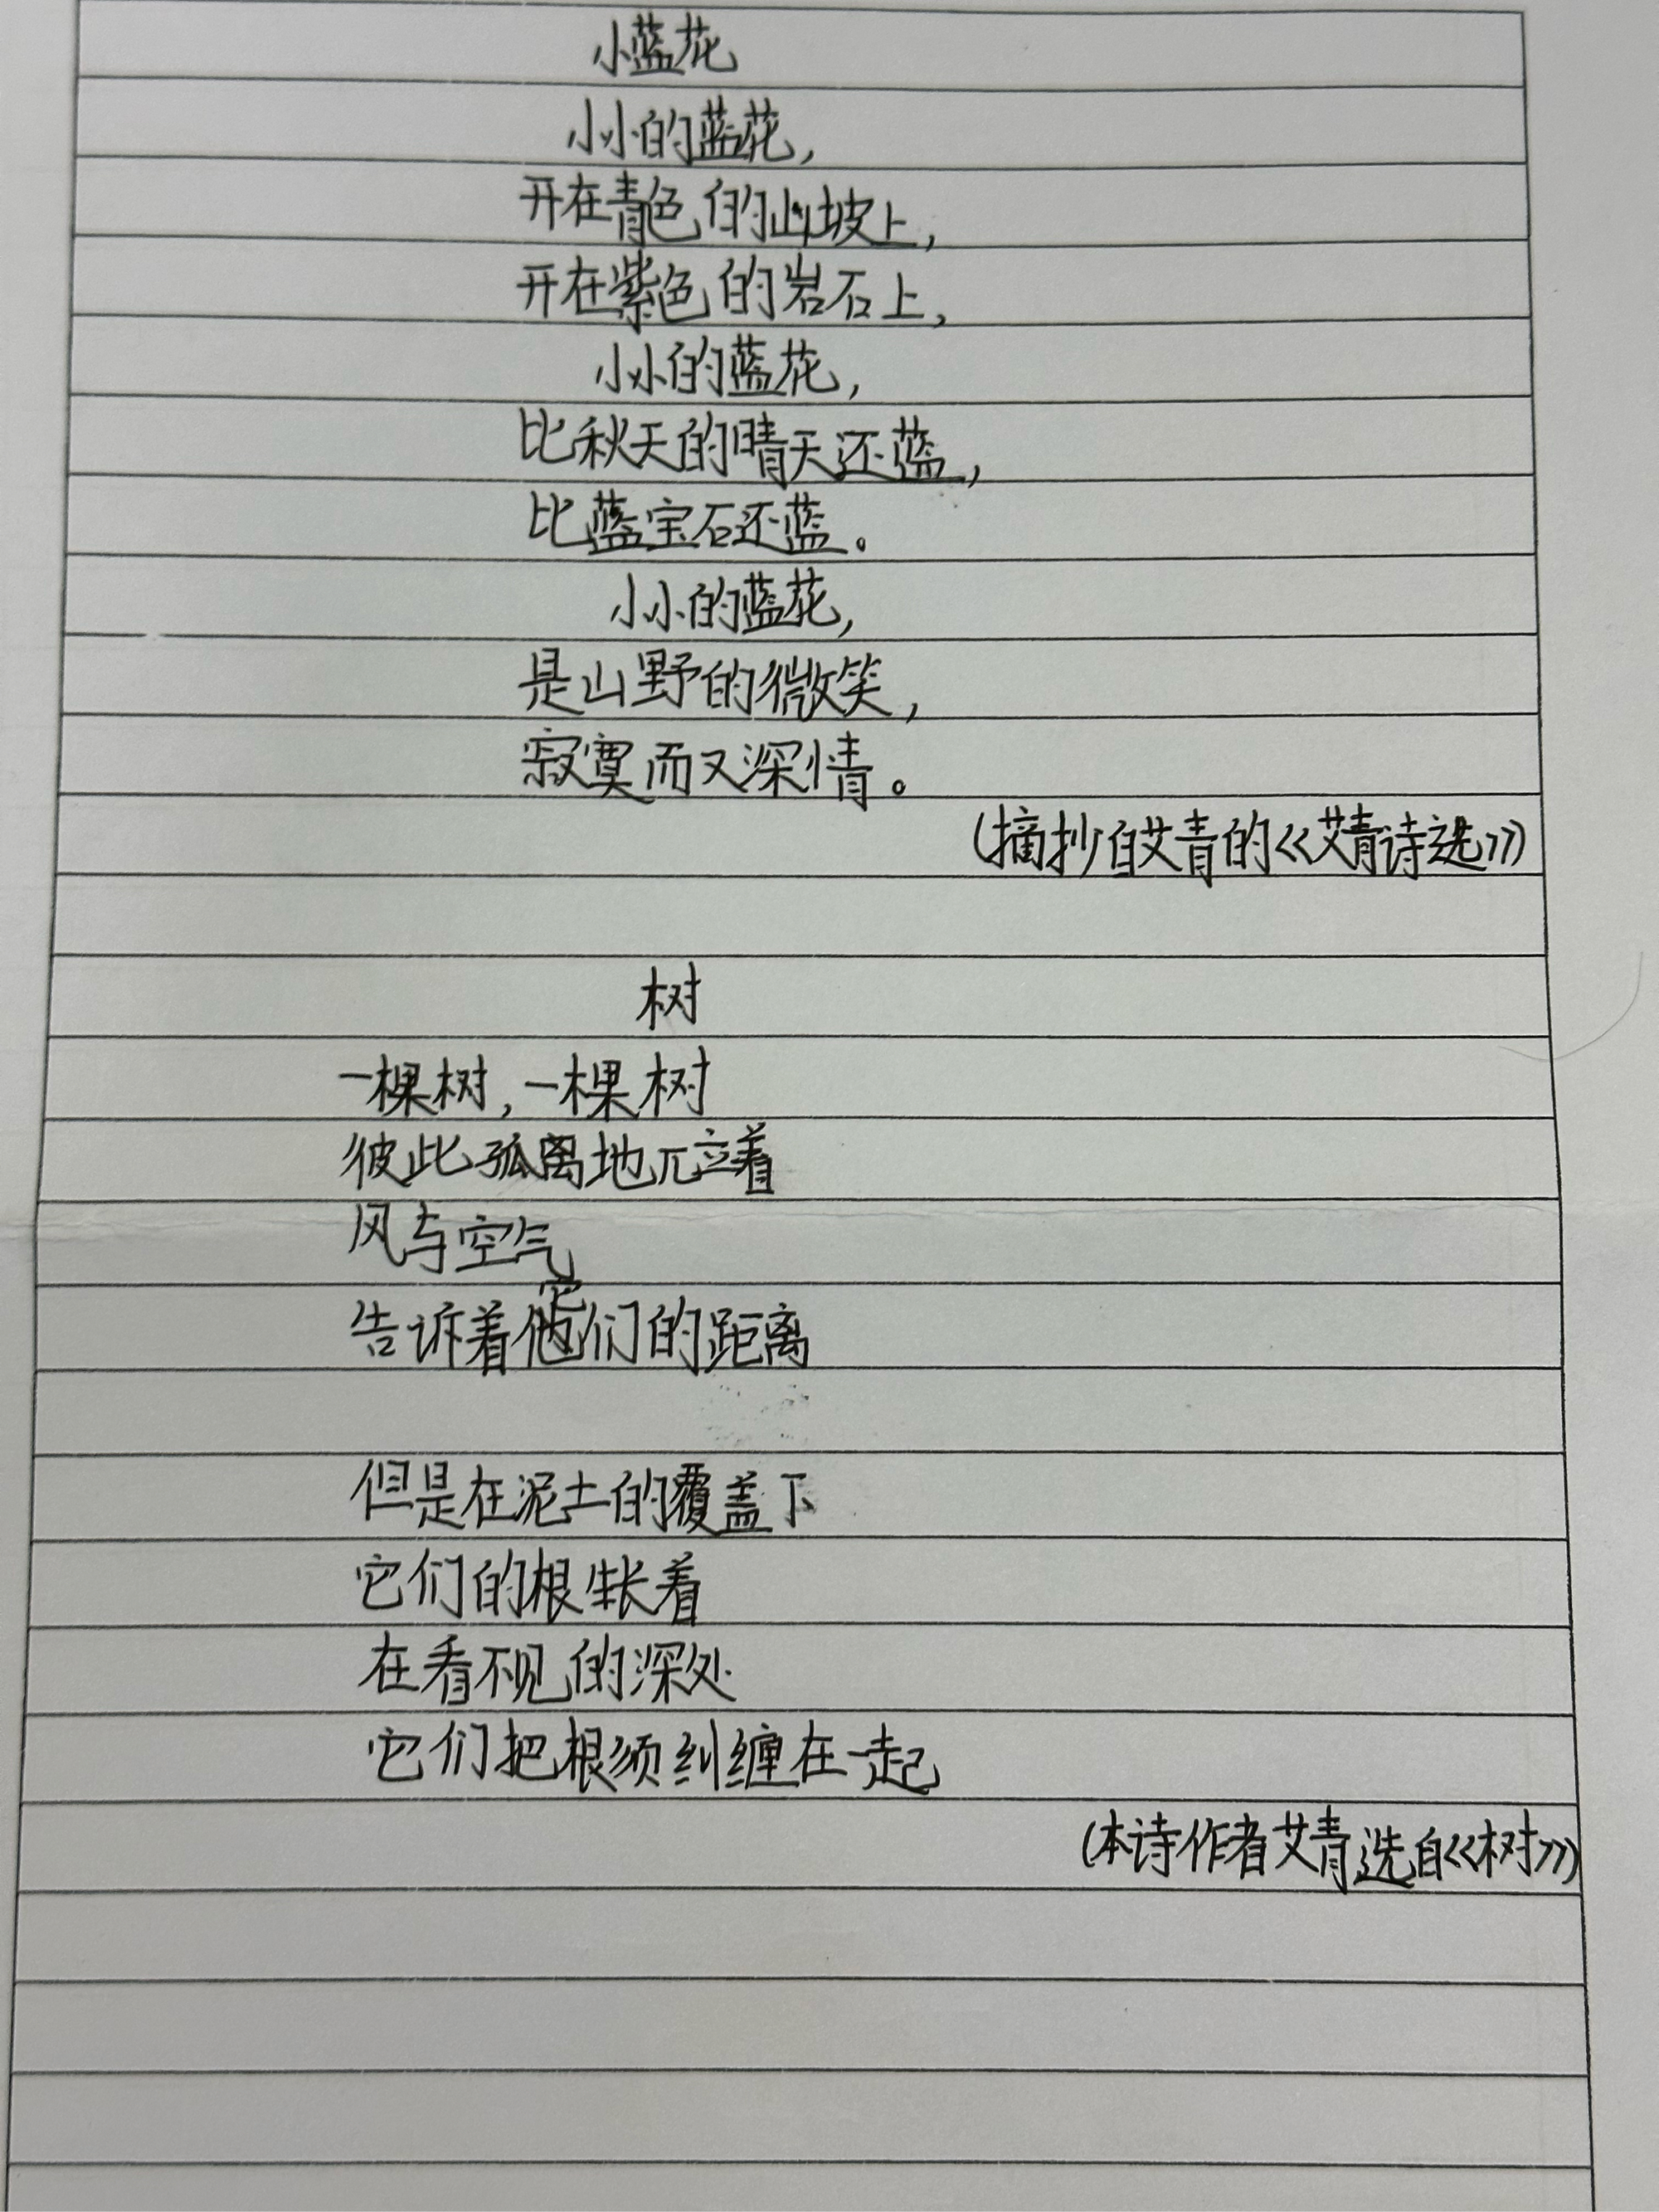 小蓝花
小小的蓝花，
开在青色的山坡上，
开在紫色的岩石上，
小小的蓝花，
比秋天的晴天还蓝，
比蓝宝石还蓝。
小小的蓝花，
是山野的微笑，
寂寞而又深情。
(摘抄自艾青的《艾青诗选》)
树
一棵树，一棵树
彼此孤离地兀立着
风与空气
告诉着它们的距离
但是在泥土的覆盖下
它们的根生长着
在看不见的深处
它们把根须纠缠在一起
(本诗作者艾青选自《树》)